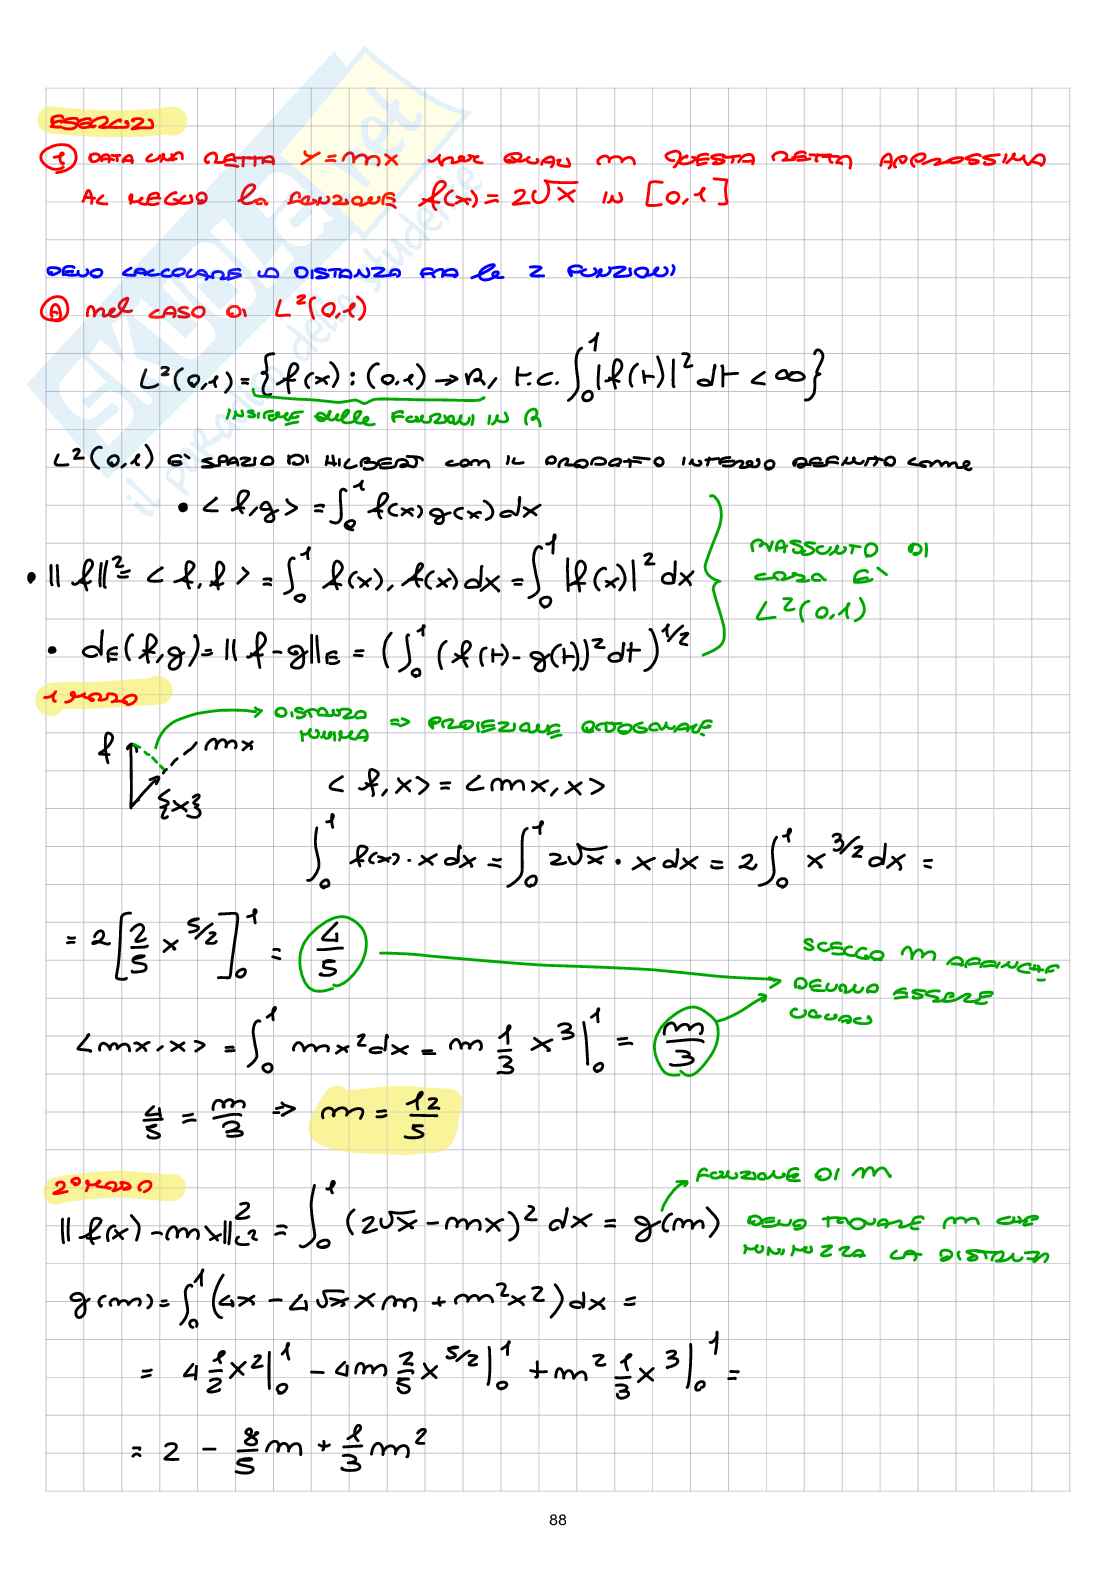 ESERCIZI
① DATA UNA RETTA y=mx per QUALI m QUESTA RETTA APPROSSIMA
AL MEGLIO la FUNZIONE f(x)=2√x IN [0,1]
DEVO CALCOLARE LA DISTANZA FRA le 2 FUNZIONI
Ⓐ nel CASO DI L²(0,1)
L²(0,1)={f(x):(0,1)→R, t.c. ∫₀¹|f(t)|²dt<∞}
INSIEME delle FUNZIONI IN R
L²(0,1) E' SPAZIO DI HILBERT con IL PRODOTTO INTERNO DEFINITO come
• <f,g> = ∫₀¹ f(x)g(x)dx
• ||f||² = <f,f> = ∫₀¹ f(x).f(x)dx = ∫₀¹|f(x)|²dx
• d_E(f,g)=||f-g||_E = (∫₀¹(f(t)-g(t))²dt)^1/2
RIASSUNTO DI
COSA E'
L²(0,1)
1 MODO
DISTANZA MINIMA => PROIEZIONE ORTOGONALE
f mx
{x}
<f,x>=<mx,x>
∫₀¹ f(x)·x dx = ∫₀¹ 2√x · x dx = 2∫₀¹ x^3/2 dx =
= 2[2/5 x^5/2]₀¹ = 4/5
SCELGO m AFFINCHE'
DEVONO ESSERE
UGUALI
<mx,x> = ∫₀¹ mx²dx = m 1/3 x³|₀¹ = m/3
4/5 = m/3 => m = 12/5
2° MODO
FUNZIONE DI m
||f(x)-mx||²_L² = ∫₀¹ (2√x-mx)² dx = g(m)
DEVO TROVARE m CHE
MINIMIZZA LA DISTANZA
g(m)=∫₀¹(4x-4√x x m+m²x²)dx =
= 4 1/2 x²|₀¹ - 4m 2/5 x^5/2|₀¹ + m² 1/3 x³|₀¹ =
= 2 - 8/5 m + 1/3 m²
88